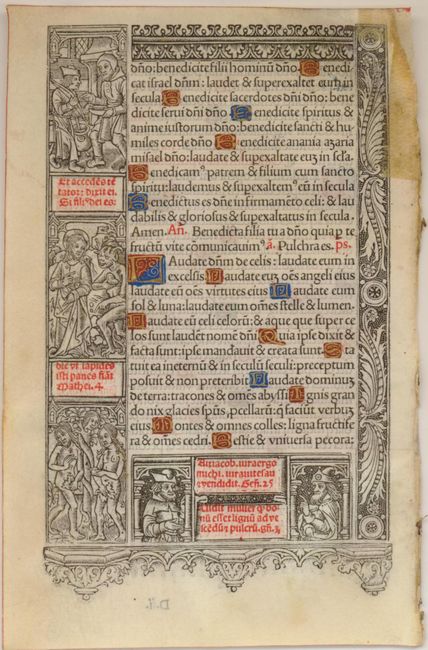 dño: benedicite filii hominũ dño. Benedi
cat israel dñm: laudet & superexaltet eum in
secula. Benedicite sacerdotes dñi dño: bene
dicite serui dñi dño Benedicite spiritus &
anime iustorum dño: benedicite sancti & hu
miles corde dño Benedicite anania azaria
misael dño: laudate & supexaltate euʒ in scľa.
Benedicamꝰ patrem & filium cum sancto
spiritu: laudemus & supexaltemꝰ eũ in secula
Benedictus es dñe in firmamẽto celi: & lau
dabilis & gloriosus & supexaltatus in secula.
Amen. Añ. Benedicta filia tu a dño quia p te
fructũ vite cõmunicauimꝰ ã. Pulchra es. ps.
Laudate dñm de celis: laudate eum in
excelsis. Laudate euʒ oẽs angeli eius
laudate eũ oẽs virtutes eius Laudate eum
sol & luna: laudate eum oẽs stelle & lumen.
Laudate eũ celi celorũ: & aque que super ce
los sunt laudẽt nomẽ dñi Quia ipse dixit &
facta sunt: ipse mandauit & creata sunt. Sta
tuit ea in eternũ & in seculũ seculi: preceptum
posuit & non preteribit Laudate dominuʒ
de terra: dracones & omẽs abyssi. Ignis gran
do nix glacies spũs pcellarũ: q̃ faciũt verbuʒ
eius Montes & omnes colles: ligna fructife
ra & omẽs cedri. Bestie & vniuersa pecora:
Et accedẽs tẽ
tator: dixit ei.
Si filiꝰ dei es:
dic vt lapides
isti panes fiãt
Mathei. 4.
Dixit iacob. iura ergo
michi. iurauit esau
& vendidit. Geñ. 25
Uidit mulier q̃ bo
nũ esset lignũ ad ve
scẽdũ & pulcrũ. gñ. 3
D.ii.